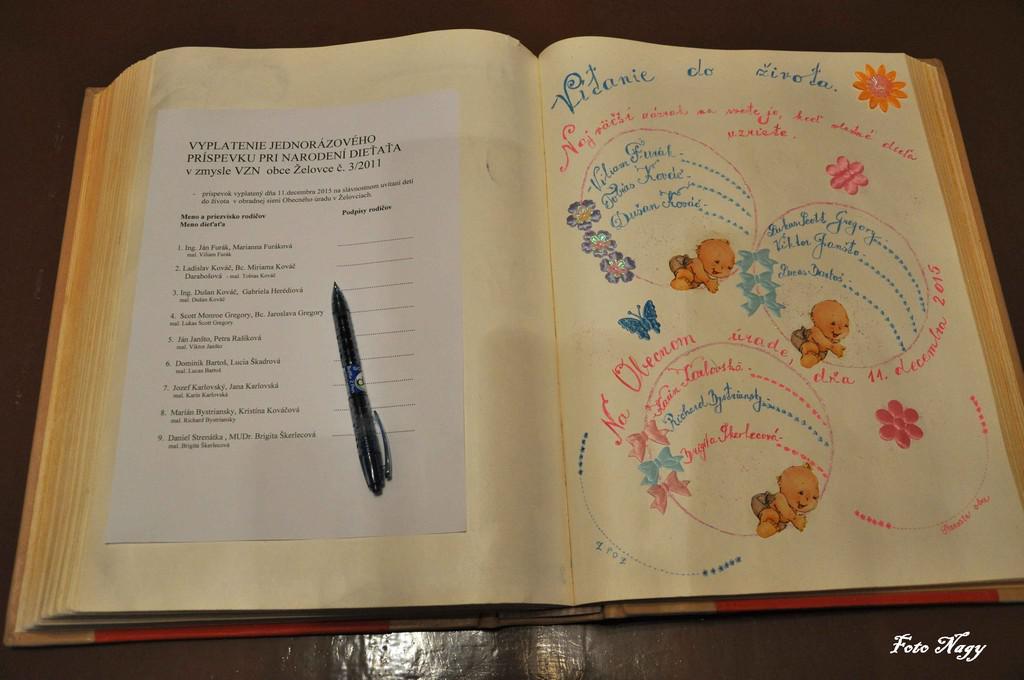 VYPLATENIE JEDNORÁZOVÉHO
PRÍSPEVKU PRI NARODENÍ DIEŤAŤA
v zmysle VZN obce Želovce č. 3/2011
- príspevok vyplatený dňa 11.decembra 2015 na slávnostnom uvítaní detí
do života v obradnej sieni Obecného úradu v Želovciach.
Meno a priezvisko rodičov Podpisy rodičov
Meno dieťaťa
1. Ing. Ján Furák, Marianna Furáková
mal. Viliam Furák
2. Ladislav Kováč, Bc. Miriama Kováč
Darabošová - mal. Tobias Kováč
3. Ing. Dušan Kováč, Gabriela Herédiová
mal. Dušan Kováč
4. Scott Monroe Gregory, Bc. Jaroslava Gregory
mal. Lukas Scott Gregory
5. Ján Janšto, Petra Rašíková
mal. Viktor Janšto
6. Dominik Bartoš, Lucia Škadrová
mal. Lucas Bartoš
7. Jozef Karlovský, Jana Karlovská
mal. Karin Karlovská
8. Marián Bystriansky, Kristína Kováčová
mal. Richard Bystriansky
9. Daniel Strenátka , MUDr. Brigita Škerlecová
mal. Brigita Škerlecová
Vítanie do života.
Najväčší zázrak na svete je, keď vlastné dieťa
uzriete.
Viliam Furák
Tobias Kováč
Dušan Kováč
Lukas Scott Gregory
Viktor Janšto
Lucas Bartoš
Na Obecnom úrade, dňa 11. decembra 2015
Karin Karlovská
Richard Bystriansky
Brigita Škerlecová
ZPOZ
Foto Nagy